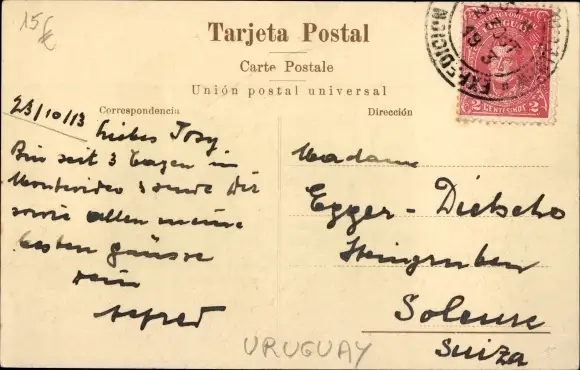 15€
Tarjeta Postal
Carte Postale
Unión postal universal
Correspondencia
Dirección
23/10/13
Liebes Josy
Bin seit 3 Tagen in
Montevideo & sende Dir
sowie allen meine
besten grüsse
Dein
Alfred
Madame
Egger - Dietscho
Steingruben
Soleure
Suiza
URUGUAY
EXPEDICION
19
2 CENTESIMOS 2